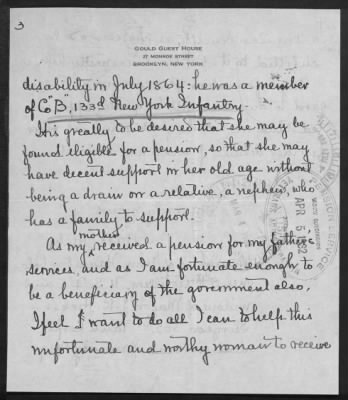 3
GOULD GUEST HOUSE
27 MONROE STREET
BROOKLYN, NEW YORK
disability in July 1864: he was a member
of Co "B", 133d New York Infantry.
It is greatly to be desired that she may be
found eligible for a pension, so that she may
have decent support in her old age without
being a drain on a relative, a nephew, who
has a family to support.
As my mother received a pension for my father's
services, and as I am fortunate enough to
be a beneficiary of the government also,
I feel I want to do all I can to help this
unfortunate and worthy woman to receive
APR 5 1932